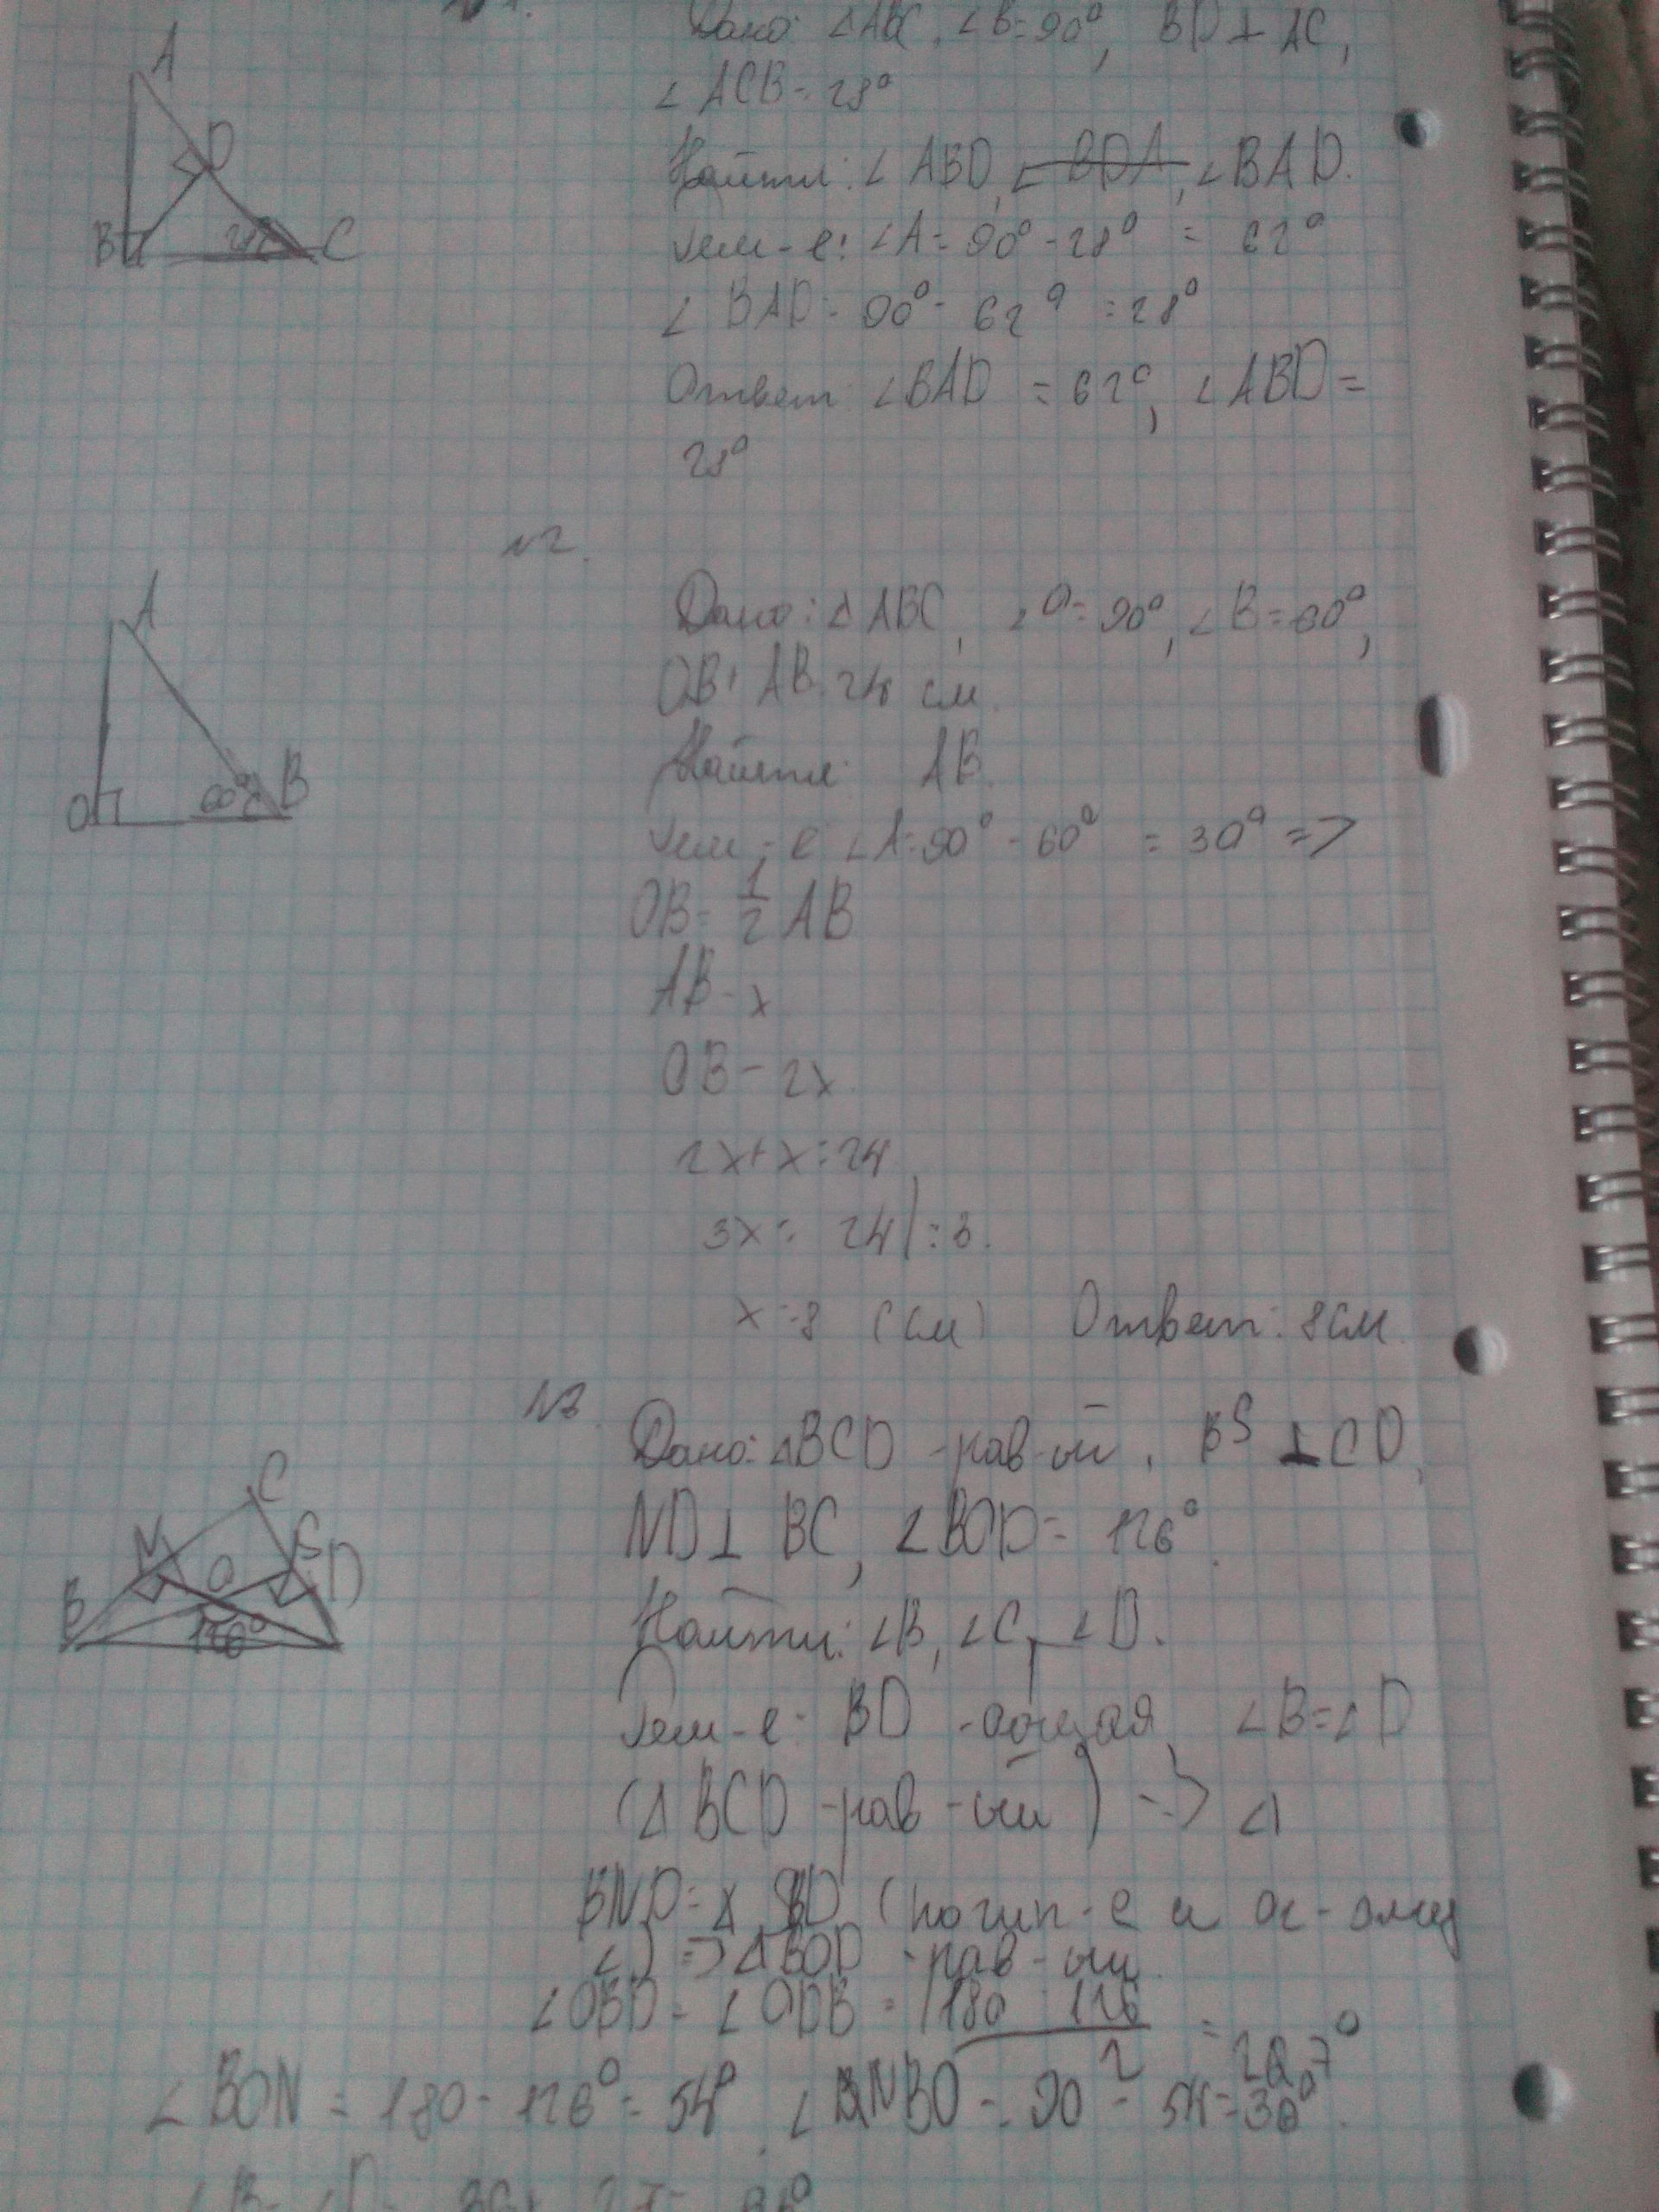 Дано: ∠ABC, ∠B=90°, BD ⊥ AC,
∠ACB = 28°
Найти: ∠ABD, ∠BDA, ∠BAD.
∠A = 90° - 28° = 62°
∠BAD = 90° - 62° = 28°
Ответ ∠BAD = 62°, ∠ABD =
28°
A
D
B
C
N2.
Дано: Δ ABC, ∠O = 90°, ∠B = 60°,
OB+AB 24 см.
Найти: AB.
∠A = 90° - 60° = 30° =>
OB = 1/2 AB
AB - x
OB - 2x
2x + x = 24
3x = 24 | : 3.
x = 8 (см) Ответ: 8см.
A
O
60°
B
N3.
Дано: ΔBCD - рав-ый, BS ⊥ CD,
ND ⊥ BC, ∠BOD = 126°.
Найти: ∠B, ∠C, ∠D.
BD - общая, ∠B = ∠D
(Δ BCD - рав-ый) => Δ
BND = Δ BD (по гип-е и ос-
∠) => ΔBOD - рав-ый
∠OBD = ∠ODB = 180 126 / 2 = 27°
∠BON = 180 - 126° = 54°, ∠NBO = 90 - 54 = 36°.
C
N
S
O
B
D
126°